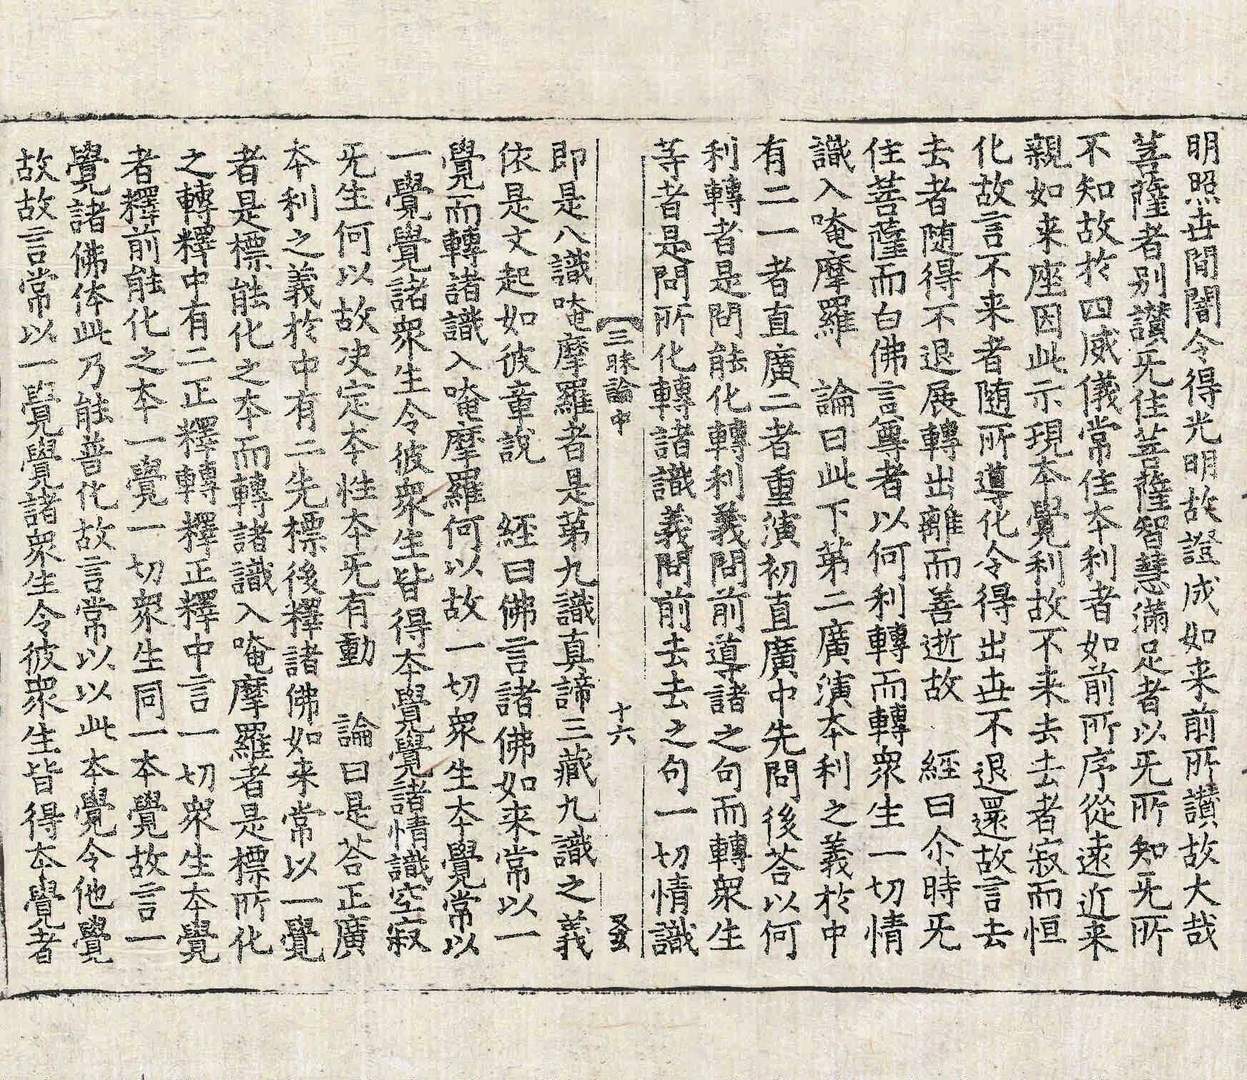 明照世間闇令得光明故證成如来前所讃故大哉
菩薩者别讃旡住菩薩智慧滿足者以旡所知旡所
不知故於四威儀常住夲利者如前所序從遠近来
親如来座因此示現夲覺利故不来去去者寂而恒
化故言不来者随所導化令得出世不退還故言去
去者随得不退展轉出離而善逝故　經曰尒時旡
住菩薩而白佛言尊者以何利轉而轉衆生一切情
識入唵摩羅　論曰此下第二廣演夲利之義於中
有二一者直廣二者重演初直廣中先問後荅以何
利轉者是問能化轉利義問前導諸之句而轉衆生
等者是問所化轉諸識義問前去去之句一切情識
三昧論中　十六
即是八識唵摩羅者是第九識真諦三藏九識之義
依是文起如彼章說　經曰佛言諸佛如来常以一
覺而轉諸識入唵摩羅何以故一切衆生夲覺常以
一覺覺諸衆生令彼衆生皆得夲覺覺諸情識空寂
旡生何以故决定夲性夲旡有動　論曰是荅正廣
夲利之義於中有二先標後釋諸佛如来常以一覺
者是標能化之夲而轉諸識入唵摩羅者是標所化
之轉釋中有二正釋轉釋正釋中言一切衆生夲覺
者釋前能化之夲一覺一切衆生同一夲覺故言一
覺諸佛体此乃能普化故言常以以此夲覺令他覺
故故言常以一覺覺諸衆生令彼衆生皆得夲覺者